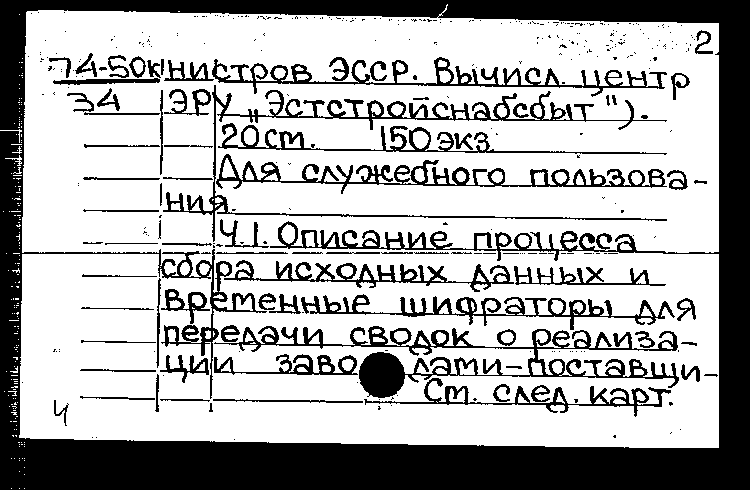 2
74-50к инистров ЭССР. Вычисл. центр
34 ЭРУ „Эстстройснабсбыт").
20 ст. 150 экз.
Для служебного пользова-
ния.
Ч.1. Описание процесса
сбора исходных данных и
временные шифраторы для
передачи сводок о реализа-
ции заво дами-поставщи-
См. след. карт.
ч